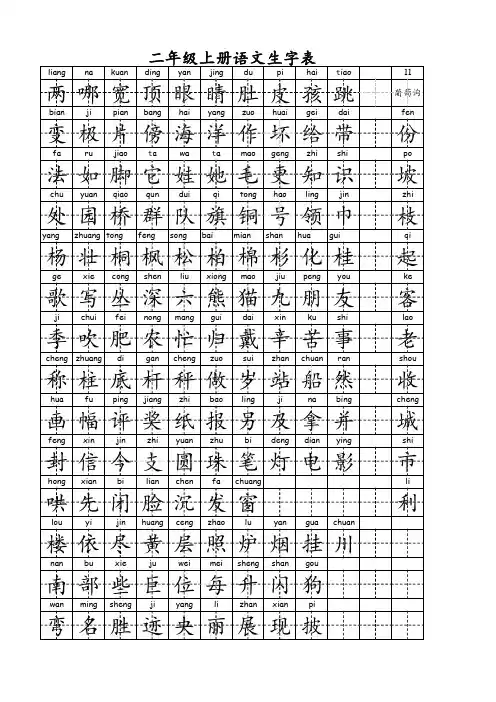 二年级上册语文生字表
liang na kuan ding yan jing du pi hai tiao 11
两 哪 宽 顶 眼 睛 肚 皮 孩 跳 葡萄沟
bian ji pian bang hai yang zuo huai gei dai fen
变 极 片 傍 海 洋 作 坏 给 带 份
fa ru jiao ta wa ta mao geng zhi shi po
法 如 脚 它 娃 她 毛 更 知 识 坡
chu yuan qiao qun dui qi tong hao ling jin zhi
处 园 桥 群 队 旗 铜 号 领 巾 枝
yang zhuang tong feng song bai mian shan hua gui qi
杨 壮 桐 枫 松 柏 棉 杉 化 桂 起
ge xie cong shen liu xiong mao jiu peng you ke
歌 写 丛 深 六 熊 猫 九 朋 友 客
ji chui fei nong mang gui dai xin ku shi lao
季 吹 肥 农 忙 归 戴 辛 苦 事 老
cheng zhuang di gan cheng zuo sui zhan chuan ran shou
称 柱 底 杆 秤 做 岁 站 船 然 收
hua fu ping jiang zhi bao ling ji na bing cheng
画 幅 评 奖 纸 报 另 及 拿 并 城
feng xin jin zhi yuan zhu bi deng dian ying shi
封 信 今 支 圆 珠 笔 灯 电 影 市
hong xian bi lian chen fa chuang li
哄 先 闭 脸 沉 发 窗 利
lou yi jin huang ceng zhao lu yan gua chuan
楼 依 尽 黄 层 照 炉 烟 挂 川
nan bu xie ju wei mei sheng shan gou
南 部 些 巨 位 每 升 闪 狗
wan ming sheng ji yang li zhan xian pi
弯 名 胜 迹 央 丽 展 现 披